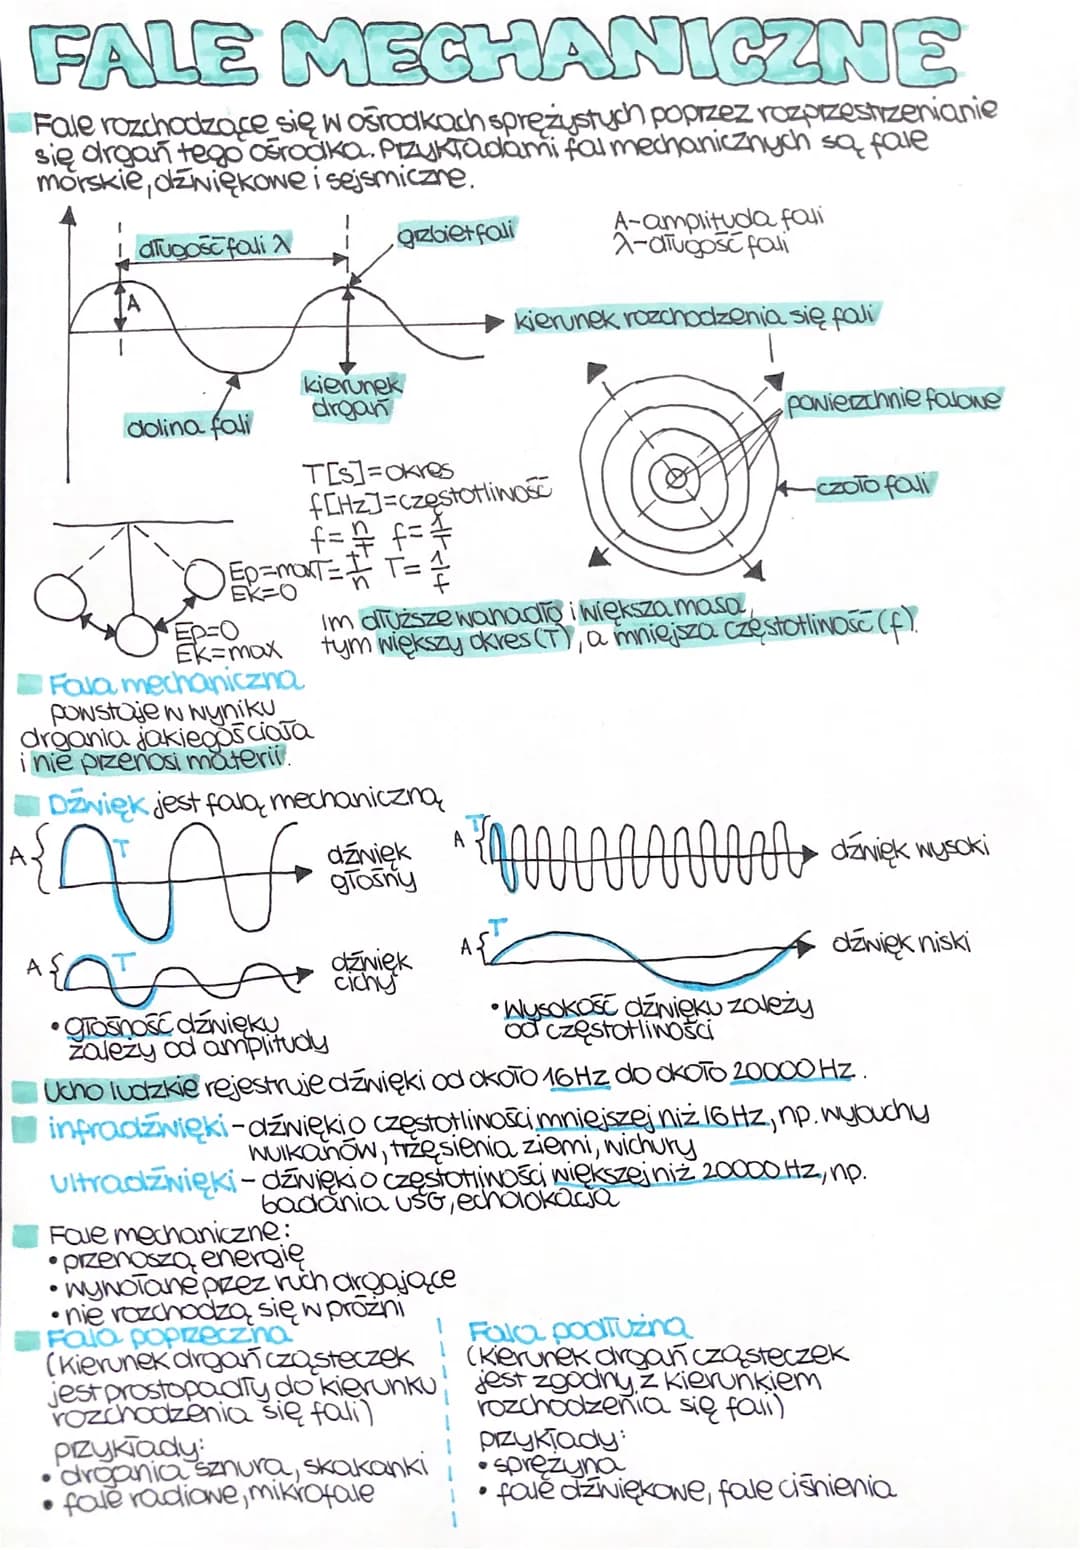 FALE MECHANICZNE
Fale rozchodzące się w ośrodkach sprężystych poprzez rozprzestrzenianie
się drgań tego ośrodka. Przykładami fal mechanicznych są fale
morskie, dźwiękowe i sejsmiczne.
długość fali λ
grzbiet fali
A-amplituda fali
λ-długość fali
A
kierunek rozchodzenia się fali
kierunek
drgań
dolina fali
powierzchnie falowe
czoło fali
T[s]=okres
f[Hz]=częstotliwość
f=n/t f=1/T
Ep=max T=t/n T=1/f
Ek=0
Ep=0
Ek=max
Im dłuższe wahadło i większa masa,
tym większy okres (T), a mniejsza częstotliwość (f).
Fala mechaniczna
powstaje w wyniku
drgania jakiegoś ciała
i nie przenosi materii.
Dźwięk jest falą mechaniczną
A { T
dźwięk
głośny
A { T
dźwięk wysoki
A { T
dźwięk
cichy
A { T
dźwięk niski
• głośność dźwięku
zależy od amplitudy
• Wysokość dźwięku zależy
od częstotliwości
Ucho ludzkie rejestruje dźwięki od około 16Hz do około 20000 Hz.
infradźwięki - dźwięki o częstotliwości mniejszej niż 16 Hz, np. wybuchy
wulkanów, trzęsienia ziemi, wichury
Ultradźwięki - dźwięki o częstotliwości większej niż 20000 Hz, np.
badania USG, echolokacja
Fale mechaniczne:
• przenoszą energię
• wywołane przez ruch drgające
• nie rozchodzą się w próżni
Fala poprzeczna
(kierunek drgań cząsteczek
jest prostopadły do kierunku
rozchodzenia się fali)
przykłady:
• drgania sznura, skakanki
• fale radiowe, mikrofale
Fala podłużna
(kierunek drgań cząsteczek
jest zgodny z kierunkiem
rozchodzenia się fali)
przykłady:
• sprężyna
• fale dźwiękowe, fale ciśnienia